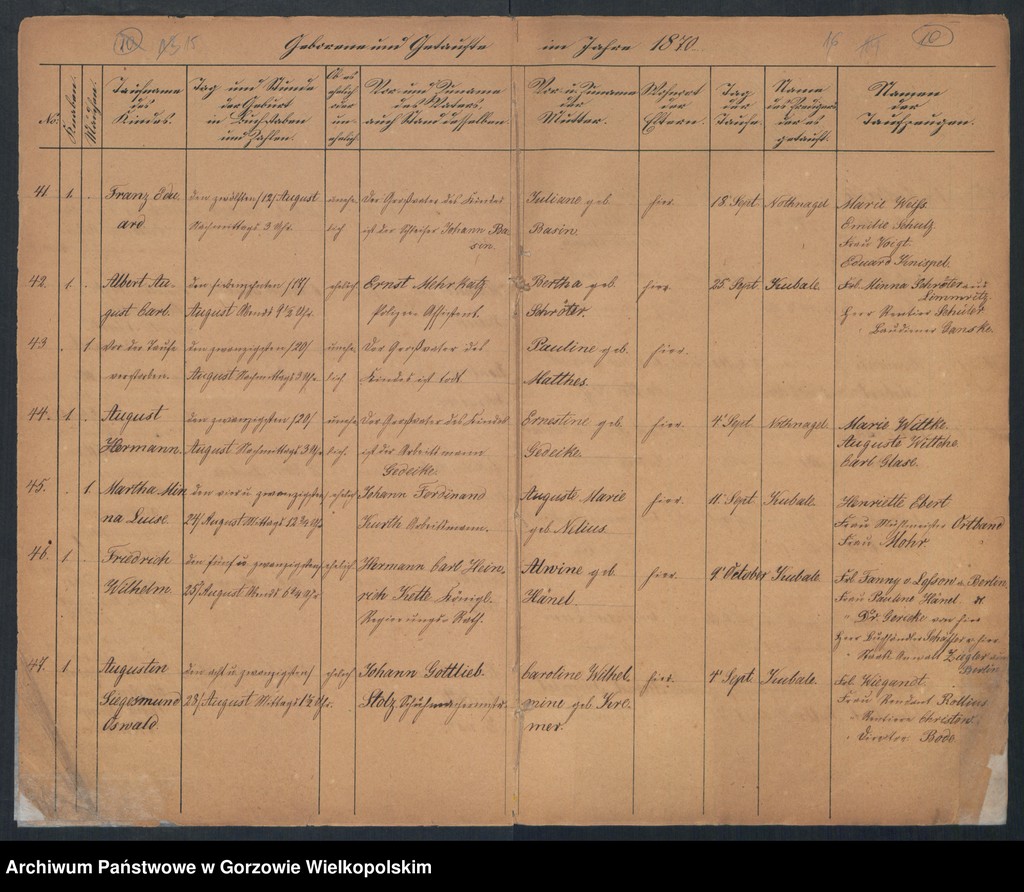 10 15 16 10
Geborene und Getaufte im Jahre 1870.
No. Knaben. Mädchen. Taufname des Kindes. Tag und Stunde der Geburt in Buchstaben und Zahlen. Ob es ehelich oder unehelich. Vor- und Zuname des Vaters, auch Stand desselben. Vor- u. Zuname der Mutter. Wohnort der Eltern. Tag der Taufe. Name des Predigers der es getauft. Namen der Taufzeugen.
41. 1. Franz Edu- den zwölften /12/ August unehe- Der Großvater des Kindes Juliane geb. hier. 18 Sept. Nothnagel Marie Weiß
ard Nachmittags 3 Uhr. lich ist der Schleifer Johann Ba- Basin. Emilie Schulz
sin. Frau Voigt
Eduard Knispel.
42. 1. Albert Au- den siebzehnten /17/ ehelich Ernst Mehrkatz Bertha geb. hier. 25 Sept. Kubale. Frl. Minna Schröter aus
gust Carl. August Abends 9½ Uhr. Polizei-Assistent. Schröter. Herr Rentier Schüler
43. 1 vor der Taufe den zwanzigsten /20/ unehe- Der Großvater des Pauline geb. hier.
verstorben. August Nachmittags 3 Uhr. lich Kindes ist todt. Matthes.
44. 1. August den zwanzigsten /20/ unehe- Der Großvater des Kindes Ernestine geb. hier. 4 Sept Nothnagel Marie Wittke.
Hermann. August Nachmittags 3 Uhr. lich. ist der Arbeitsmann Gedeike. Auguste Wittche
Gedeike. Carl Glase.
45. 1. Martha Min- den vier u. zwanzigsten ehelich Johann Ferdinand Auguste Marie hier. 11 Sept Kubale. Henriette Ebert
na Luise. 24/ August Mittags 12¾ Uhr Kurth Arbeitsmann. geb. Nelius. Frau Ortband
Frau Mohr.
46. 1. Friedrich den fünf u. zwanzigsten ehelich Hermann Carl Hein- Alwine geb. hier. 9 October Kubale. Frl. Fanny v. Berlin
Wilhelm. 25/ August Abends 6¼ Uhr rich Kette Königl. Hänel. Frau Pauline Hänel
Regierungs-Rath. Dr. Gericke von hier
Herr Schäffer v. hier
Rechts Anwalt Ziegler aus
Berlin
47. 1. Augustin den acht u. zwanzigsten ehelich Johann Gottlieb Caroline Wilhel- hier. 4 Sept. Kubale. Frl. Wiegandt.
Siegesmund 28/ August Mittags 1½ Uhr. Stolz Schuhmachermstr. mine geb. Kre- Frau Rendant Rollius
Oswald. mer. Rentiere Christow.
Director Bode.
Archiwum Państwowe w Gorzowie Wielkopolskim